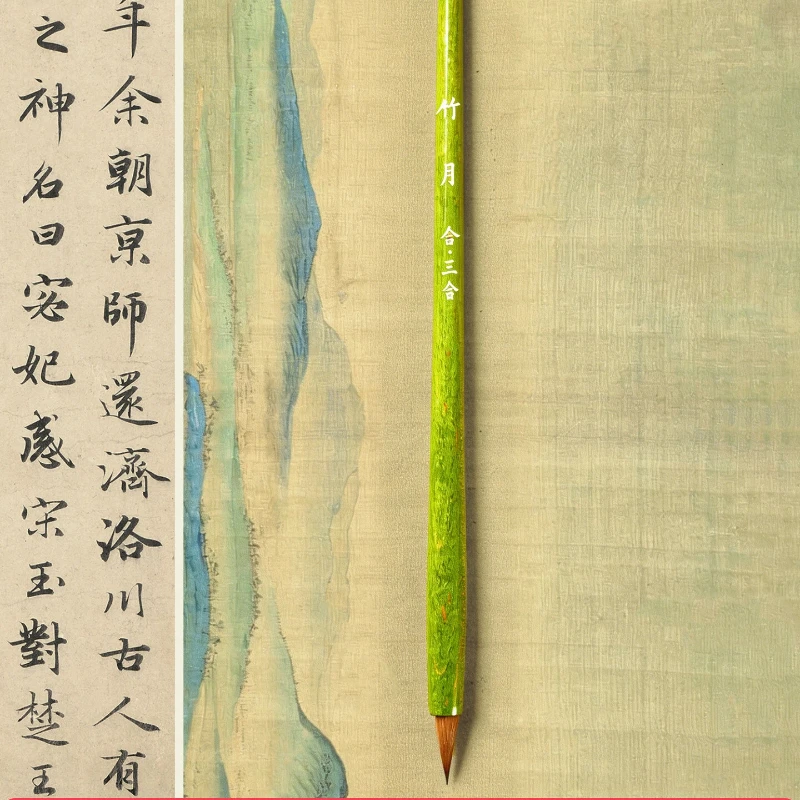 年余朝亰師還濟洛川古人有
之神名曰宓妃感宋玉對楚王
竹月 合·三合